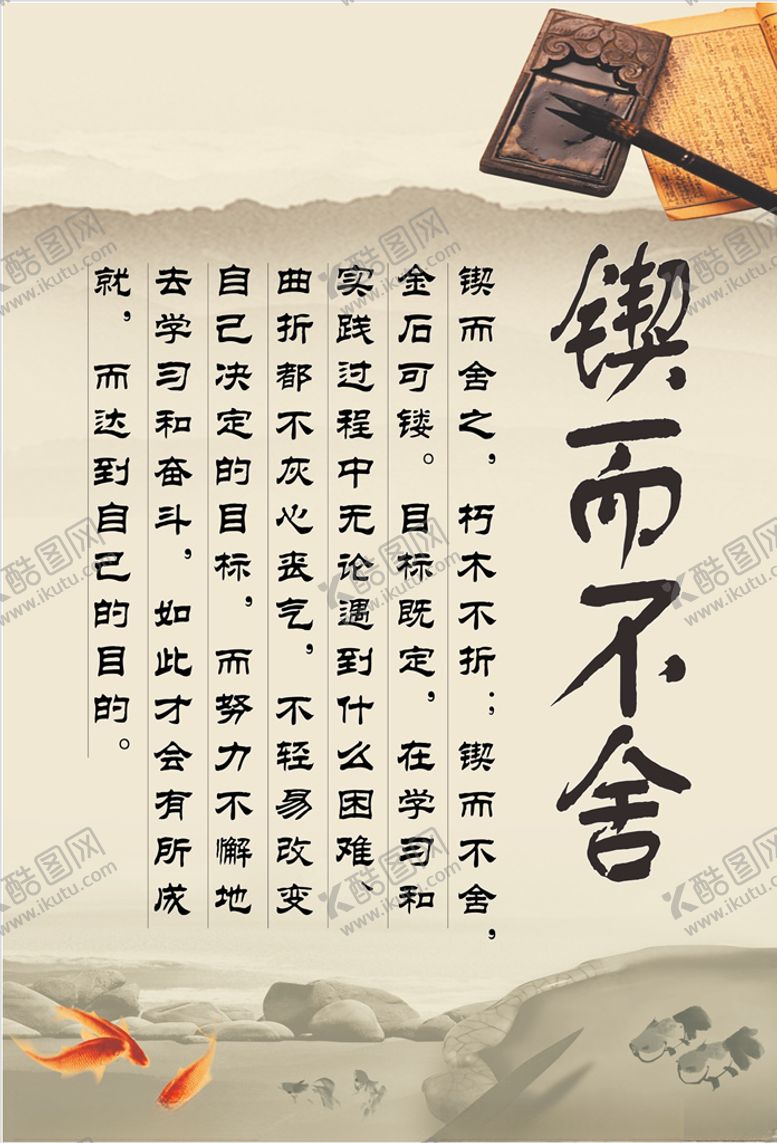 锲而不舍
锲而舍之，朽木不折；锲而不舍，
金石可镂。目标既定，在学习和
实践过程中无论遇到什么困难、
曲折都不灰心丧气，不轻易改变
自己决定的目标，而努力不懈地
去学习和奋斗，如此才会有所成
就，而达到自己的目的。
酷图网
www.ikutu.com